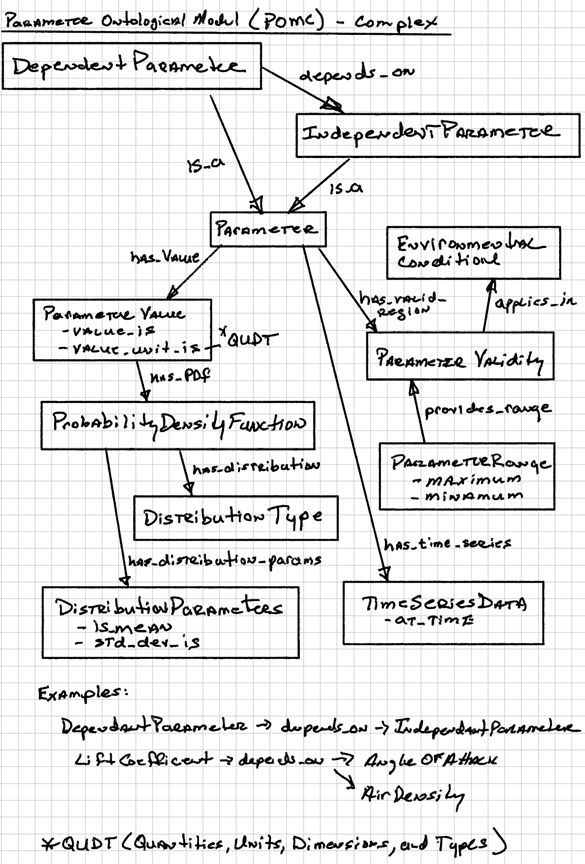 Parameter Ontological Model (POMC) - Complex
DependentParameter
depends_on
IndependentParameter
is_a
is_a
Parameter
has_Value
Environmental
Conditions
has_valid_
region
applies_in
Parameter Value
- value_is
- value_unit_is - *QUDT
Parameter Validity
has_PDf
provides_range
ProbabilityDensityFunction
has_distribution
ParameterRange
- maximum
- minamum
Distribution Type
has_time_series
has_distribution_params
DistributionParameters
- is_mean
- std_dev_is
TimeSeriesData
- at_time
Examples:
DependantParameter → depends_on → IndependantParameter
Lift Coefficient → depends_on → Angle Of Attack
Air Density
*QUDT (Quantities, Units, Dimensions, and Types)